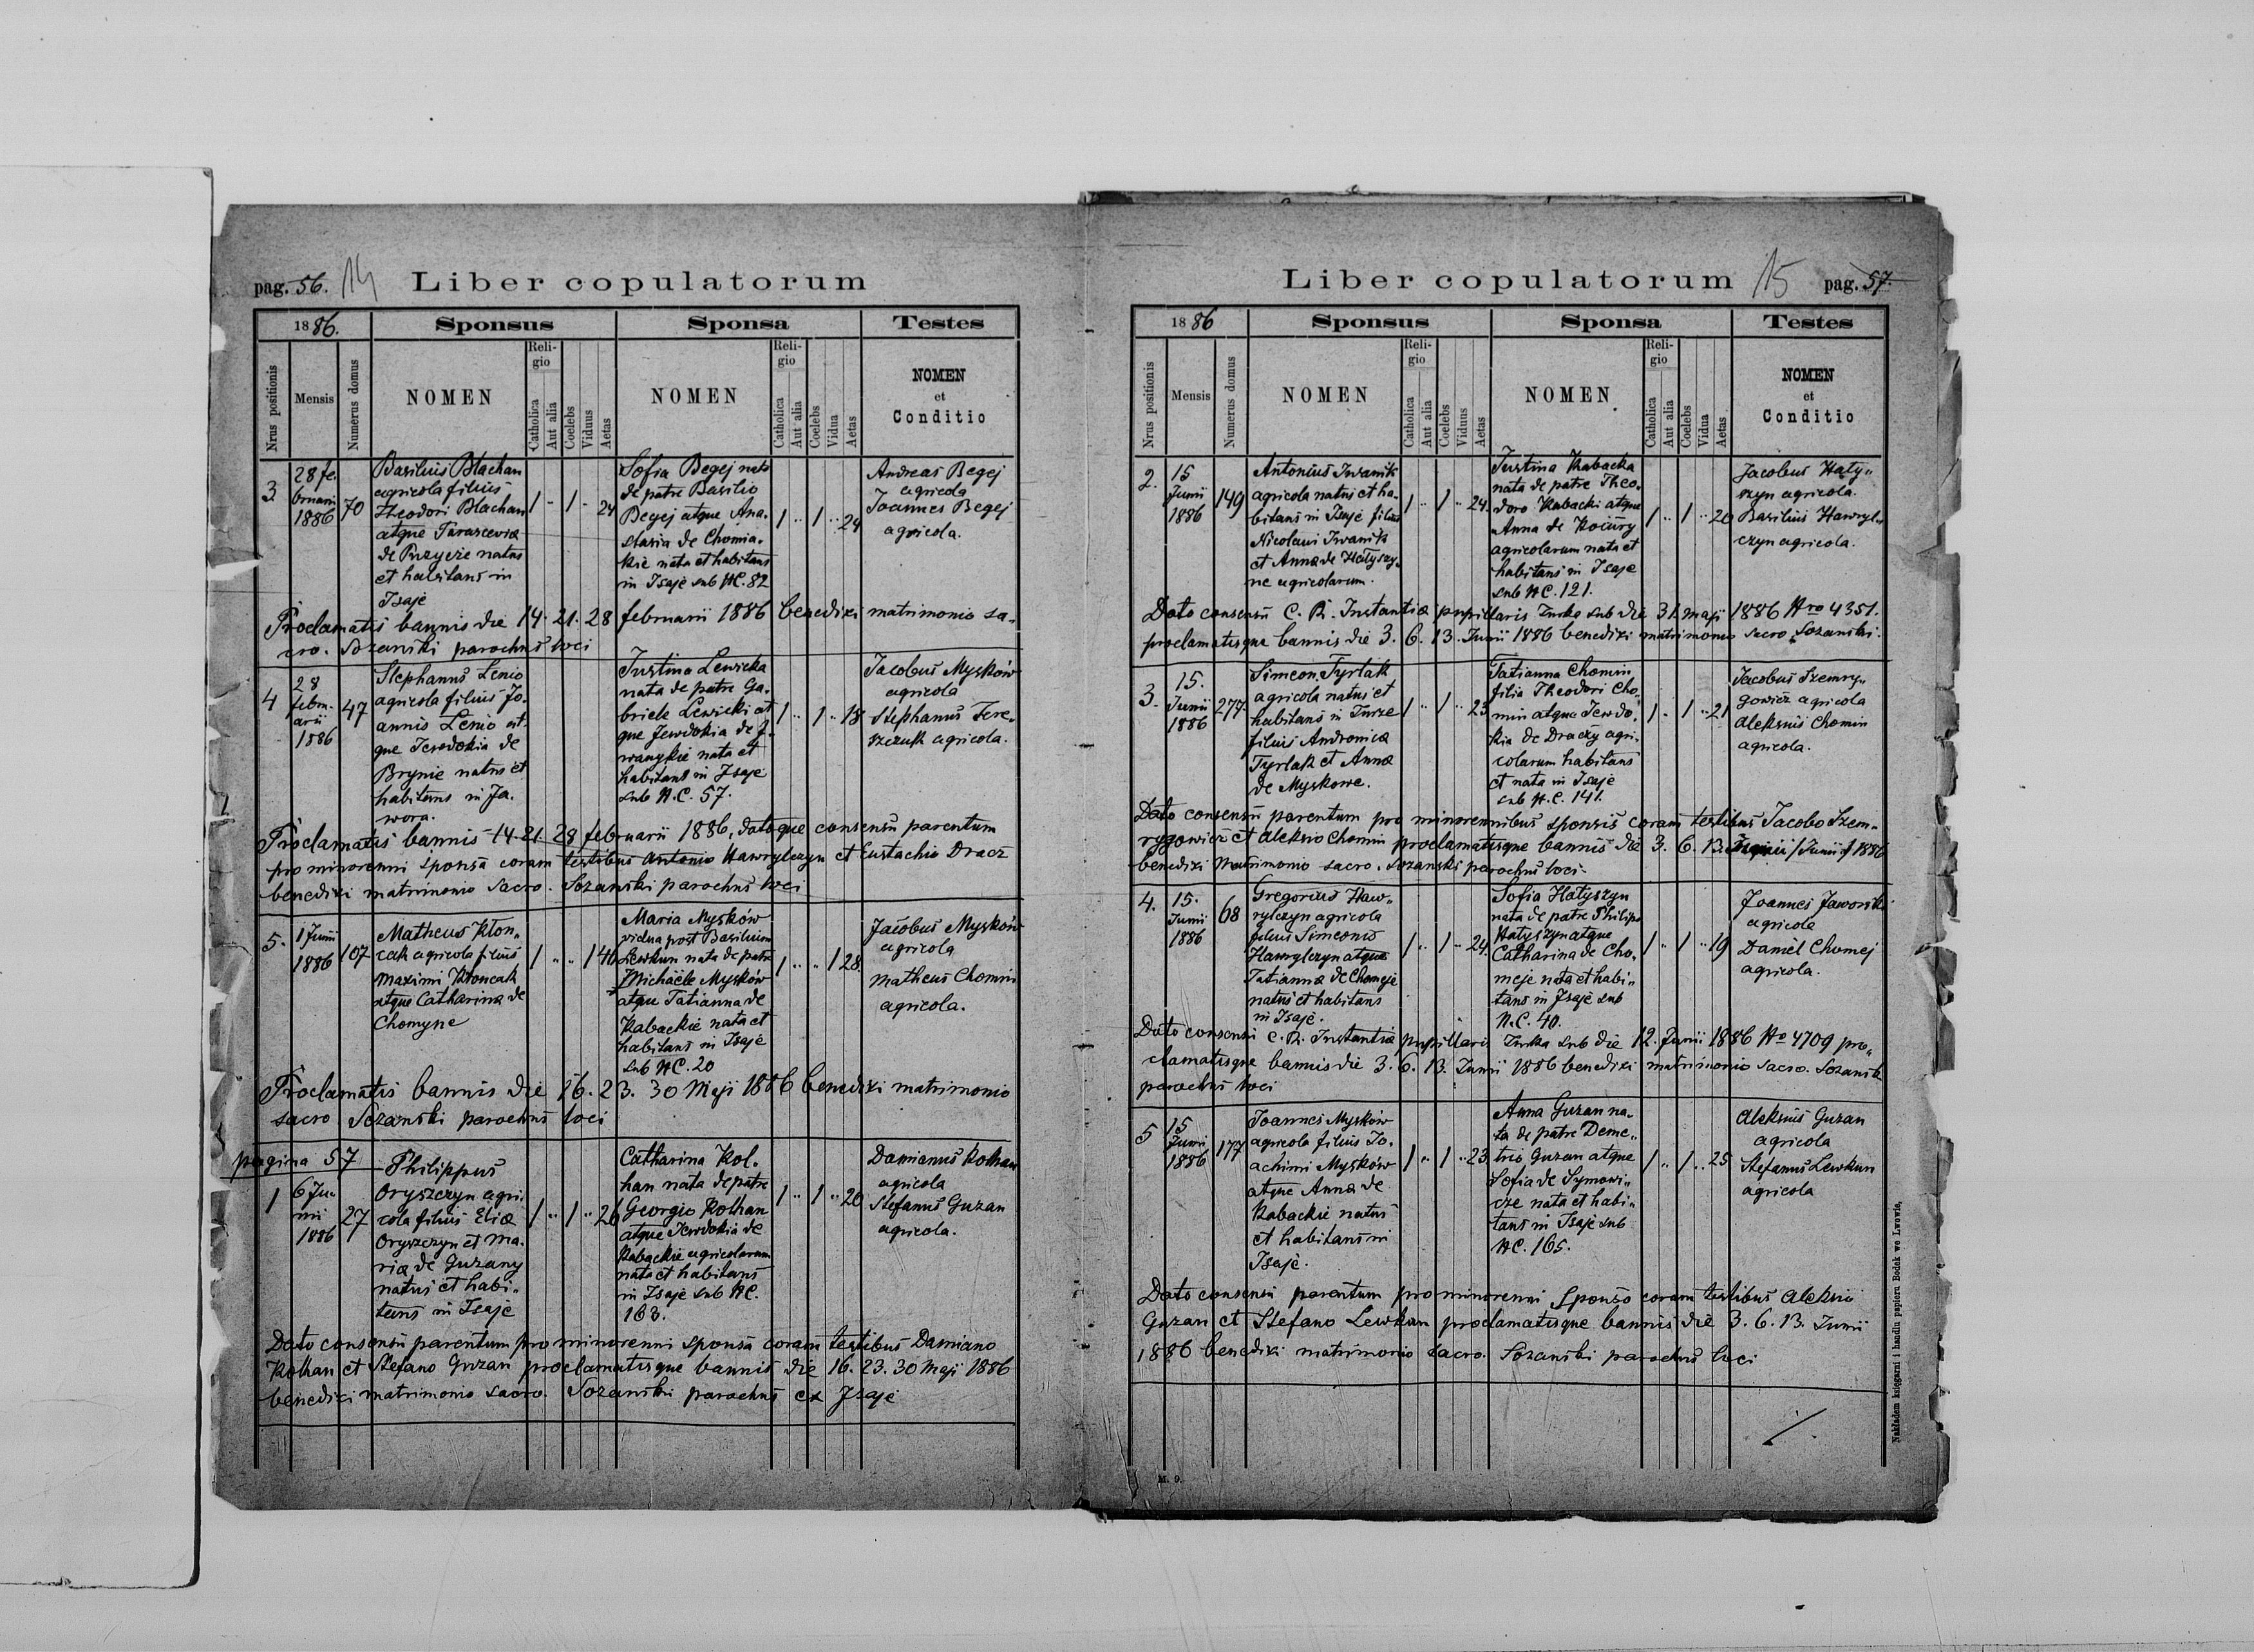 pag. 56. 14 Liber copulatorum
1886. Sponsus Sponsa Testes
Nrus positionis Mensis Numerus domus NOMEN Religio Catholica Aut alia Coelebs Viduus Aetas NOMEN Religio Catholica Aut alia Coelebs Vidua Aetas NOMEN et Conditio
3
28 fe.
bruarii
1886
70
Basilius Blachan
agricola filius
Theodori Blachan
atque Parascevia
de Puzycze natus
et habitans in
Isaje
1 - 1 - 24
Sofia Begej nata
de patre Basilio
Begej atque Ana.
stasia de Chomia.
kie nata et habitans
in Isaje sub NC. 82
1 .. 1 .. 24
Andreas Begej
agricola
Joannes Begej
agricola.
Proclamatis bannis die 14. 21. 28 februarii 1886 benedixi matrimonio sa„
cro. Sozanski parochus loci
4
28
febru-
arii
1886
47
Stephanus Lenio
agricola filius Jo.
annis Lenio at
que Jewdokia de
Brynie natus et
habitans in Ja.
wora.
Justina Lewicka
nata de patre Ga.
briele Lewicki at
que Jewdokia de J.
wanykie nata et
habitans in Isaje
sub N.C. 57.
1 .. 1 .. 18
Jacobus Mysków
agricola
Stephanus Fere„
szczuk agricola.
Proclamatis bannis 14. 21. 28 februarii 1886, datoque consensu parentum
pro minorenni sponsa coram testibus Antonio Hawrylczyn et Eustachio Dracz
benedixi matrimonio sacro. Sozanski parochus loci
5.
1 Junii
1886
107
Matheus Kton„
cak agricola filius
Maximi Ktoncak
atque Catharina de
Chomyne
1 .. .. 1 40
Maria Mysków
vidua post Basilium
Lewkun nata de patre
Michaële Mysków
atque Tatianna de
Kabackie nata et
habitans in Isaje
sub NC. 20
1 .. .. 1 28.
Jacobus Mysków
agricola
Matheus Chomin
agricola.
Proclamatis bannis die 16. 23. 30 Maji 1886 benedixi matrimonio
sacro Sozanski parochus loci
pagina 57
1
6 Ju„
nii
1886
27
Philippus
Oryszczyn agri.
cola filius Eliæ
Oryszczyn et Ma.
ria de Guzany
natus et habi„
tans in Isaje
1 .. 1 .. 26
Catharina Kol.
han nata de patre
Georgio Kolhan
atque Jewdokia de
Kabackie agricolarum
nata et habitans
in Isaje sub NC.
163.
1 .. 1 .. 20
Damianus Kolhan
agricola
Stefanus Guzan
agricola.
Dato consensu parentum pro minorenni sponsa coram testibus Damiano
Kolhan et Stefano Guzan proclamatisque bannis die 16. 23. 30 Maji 1886
benedixi matrimonio sacro. Sozanski parochus ex Isaje
Liber copulatorum 15 pag. 57.
1886 Sponsus Sponsa Testes
Nrus positionis Mensis Numerus domus NOMEN Religio Catholica Aut alia Coelebs Viduus Aetas NOMEN Religio Catholica Aut alia Coelebs Vidua Aetas NOMEN et Conditio
2.
15
Junii
1886
149
Antonius Iwanik
agricola natus et ha„
bitans in Isaje filius
Nicolaui Iwanik
et Anna de Hatyszy„
ne agricolarum.
1 .. 1 .. 24.
Justina Kabacka
nata de patre Theo.
doro Kabacki atque
Anna de Kocury
agricolarum nata et
habitans in Isaje
sub NC. 121.
1 .. 1 .. 20
Jacobus Haty„
szyn agricola.
Basilius Hawryl„
czyn agricola.
Dato consensu C. R. Instantiæ pupillaris Turka sub die 31. Maji 1886 Nro 4351.
proclamatisque bannis die 3. 6. 13. Junii 1886 benedixi matrimonio sacro. Sozanski.
3.
15.
Junii
1886
277
Simeon Tyrlak
agricola natus et
habitans in Turze
filius Andronica
Tyrlak et Anna
de Myskowe.
1 .. 1 .. 23
Tatianna Chomin
filia Theodori Cho„
min atque Jewdo„
kia de Draczy agri„
colarum habitans
et nata in Isaje
sub N.C. 141.
1 .. 1 .. 21
Jacobus Szemry„
gowicz agricola
Aleksius Chomin
agricola.
Dato consensu parentum pro minorennibus sponsis coram testibus Jacobo Szem„
rygowicz et Aleksio Chomin proclamatisque bannis die 3. 6. 13. /Junii/ 1886
benedixi matrimonio sacro. Sozanski parochus loci.
4.
15.
Junii
1886
68
Gregorius Haw„
rylczyn agricola
filius Simeonis
Hawrylczyn atque
Tatianna de Chomeje
natus et habitans
in Isaje.
1 .. 1 .. 24.
Sofia Hatyszyn
nata de patre Philippo
Hatyszyn atque
Catharina de Cho„
meje nata et habi„
tans in Isaje sub
N.C. 40.
1 .. 1 .. 19
Joannes Jaworski
agricola
Daniël Chomej
agricola.
Dato consensu C. R. Instantiæ pupillaris Turka sub die 12. Junii 1886 No 4709 pro„
clamatisque bannis die 3. 6. 13. Junii 1886 benedixi matrimonio sacro. Sozanski
parochus loci
5
15
Junii
1886
177
Joannes Mysków
agricola filius Jo.
achimi Mysków
atque Anna de
Kabackie natus
et habitans in
Isaje.
1 .. 1 .. 23
Anna Guzan na„
ta de patre Deme„
trio Guzan atque
Sofia de Symowi„
cze nata et habi„
tans in Isaje sub
NC. 165.
1 .. 1 .. 25
Aleksius Guzan
agricola
Stefanus Lewkun
agricola
Dato consensu parentum pro minorenni sponso coram testibus Aleksio
Guzan et Stefano Lewkun proclamatisque bannis die 3. 6. 13. Junii
1886 benedixi matrimonio sacro. Sozanski parochus loci
M. 9.
Nakładem księgarni i handlu papieru Bodek we Lwowie,